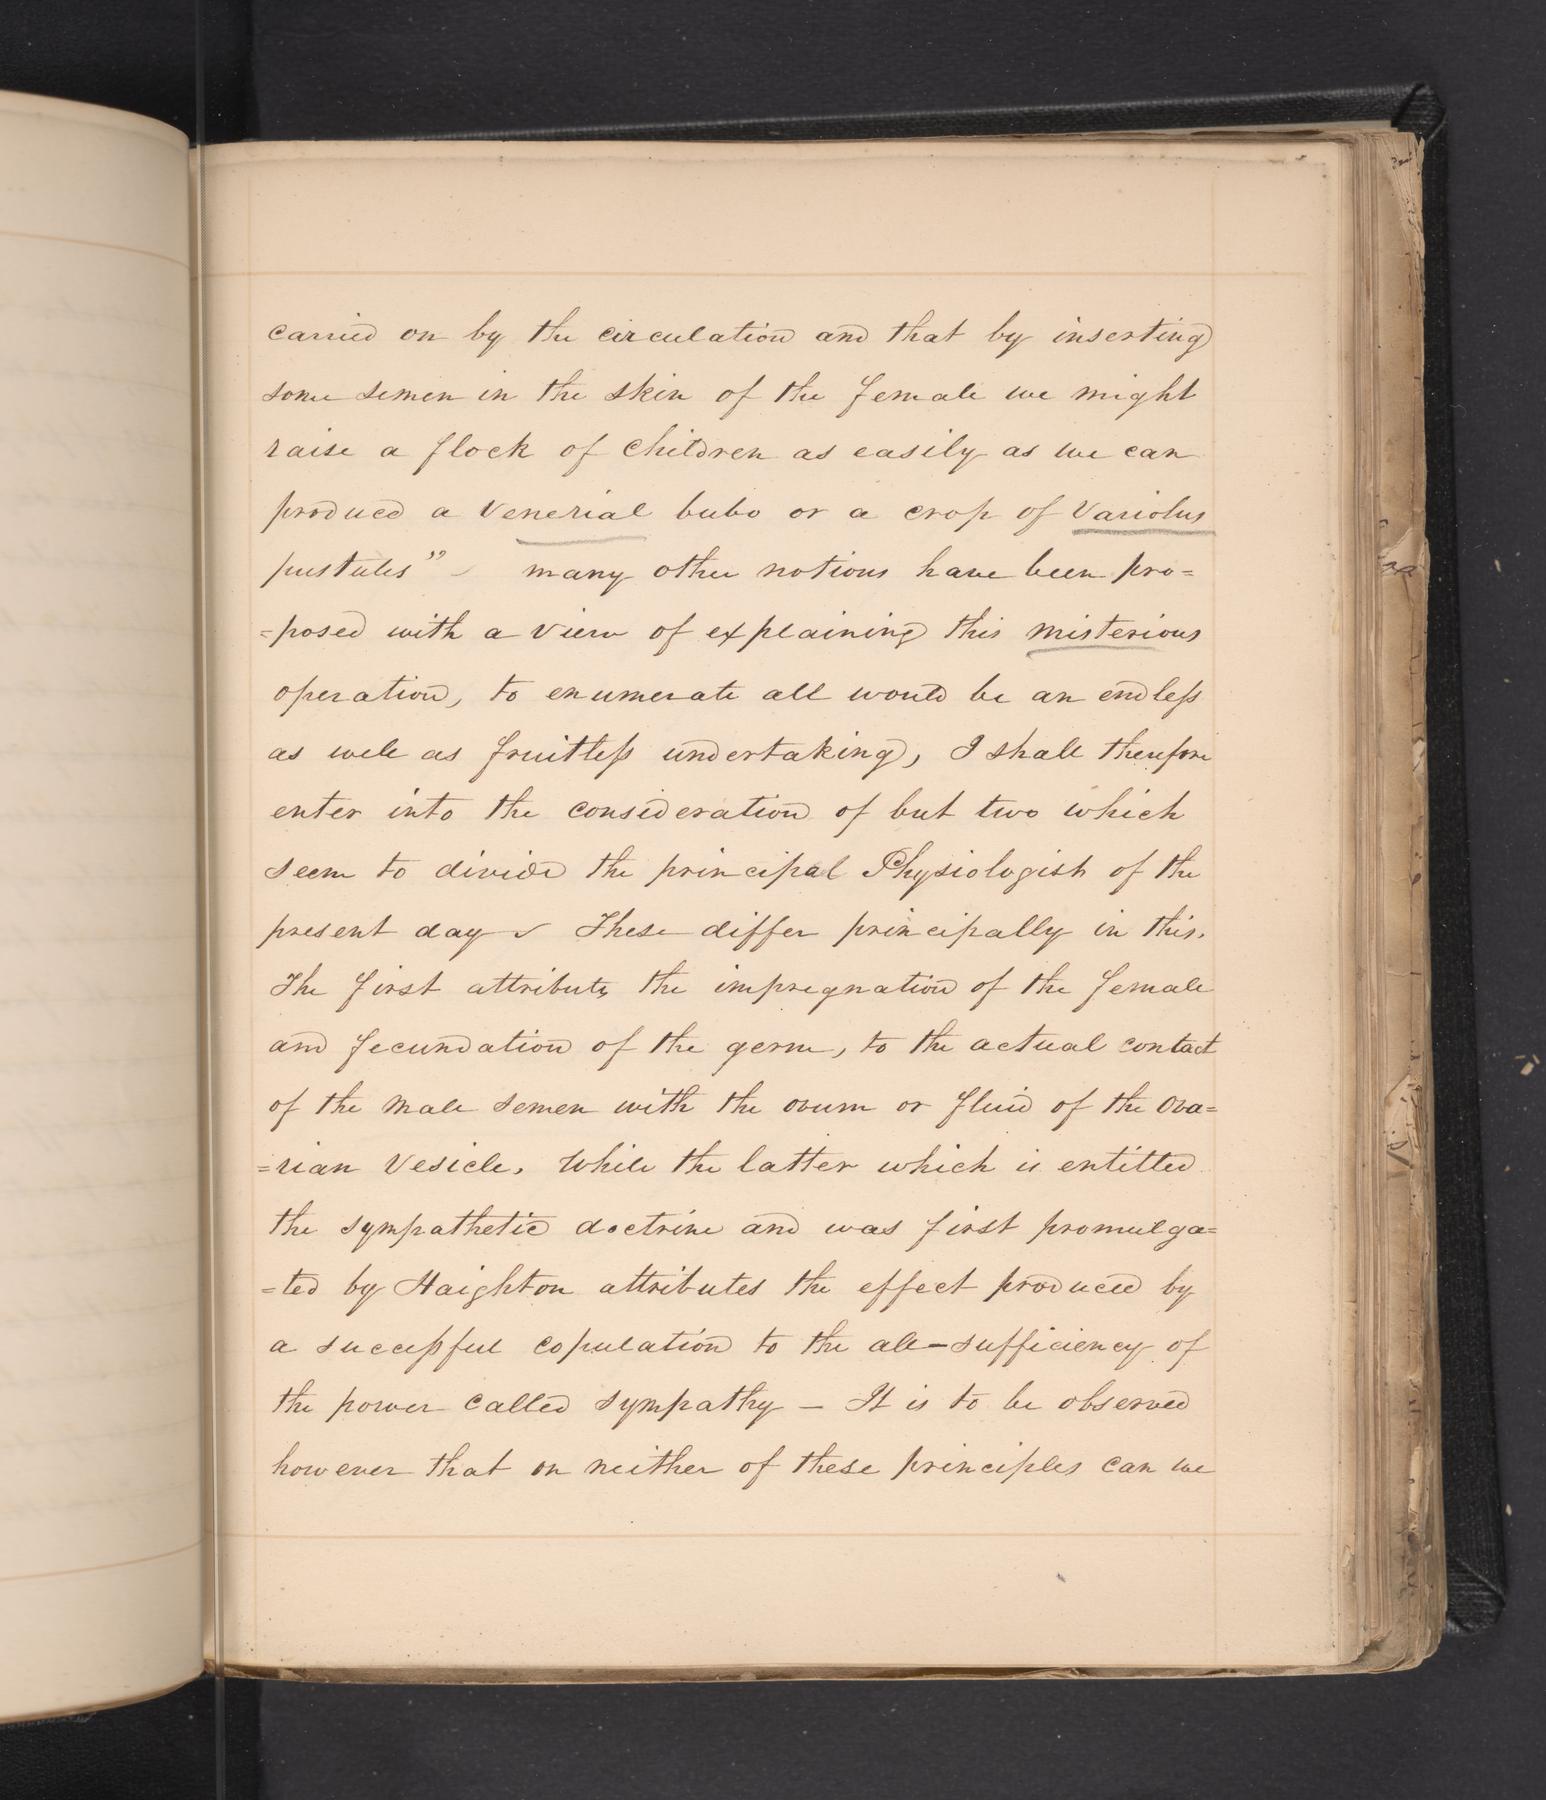 carried on by the circulation and that by inserting
some semen in the skin of the female we might
raise a flock of children as easily as we can
produced a venerial bubo or a crop of Variolus
pustules" – many other notions have been pro=
=posed with a view of explaining this misterious
operation, to enumerate all would be an endless
as well as fruitless undertaking, I shall therefore
enter into the consideration of but two which
seem to divide the principal Physiologist of the
present day – These differ principally in this.
The first attributes the impregnation of the female
and fecundation of the germ, to the actual contact
of the male semen with the ovum or fluid of the Ova=
=rian Vesicle, While the latter which is entitled
the sympathetic doctrine and was first promulga=
=ted by Haighton attributes the effect produced by
a successful copulation to the all-sufficiency of
the power called sympathy – It is to be observed
however that on neither of these principles can we